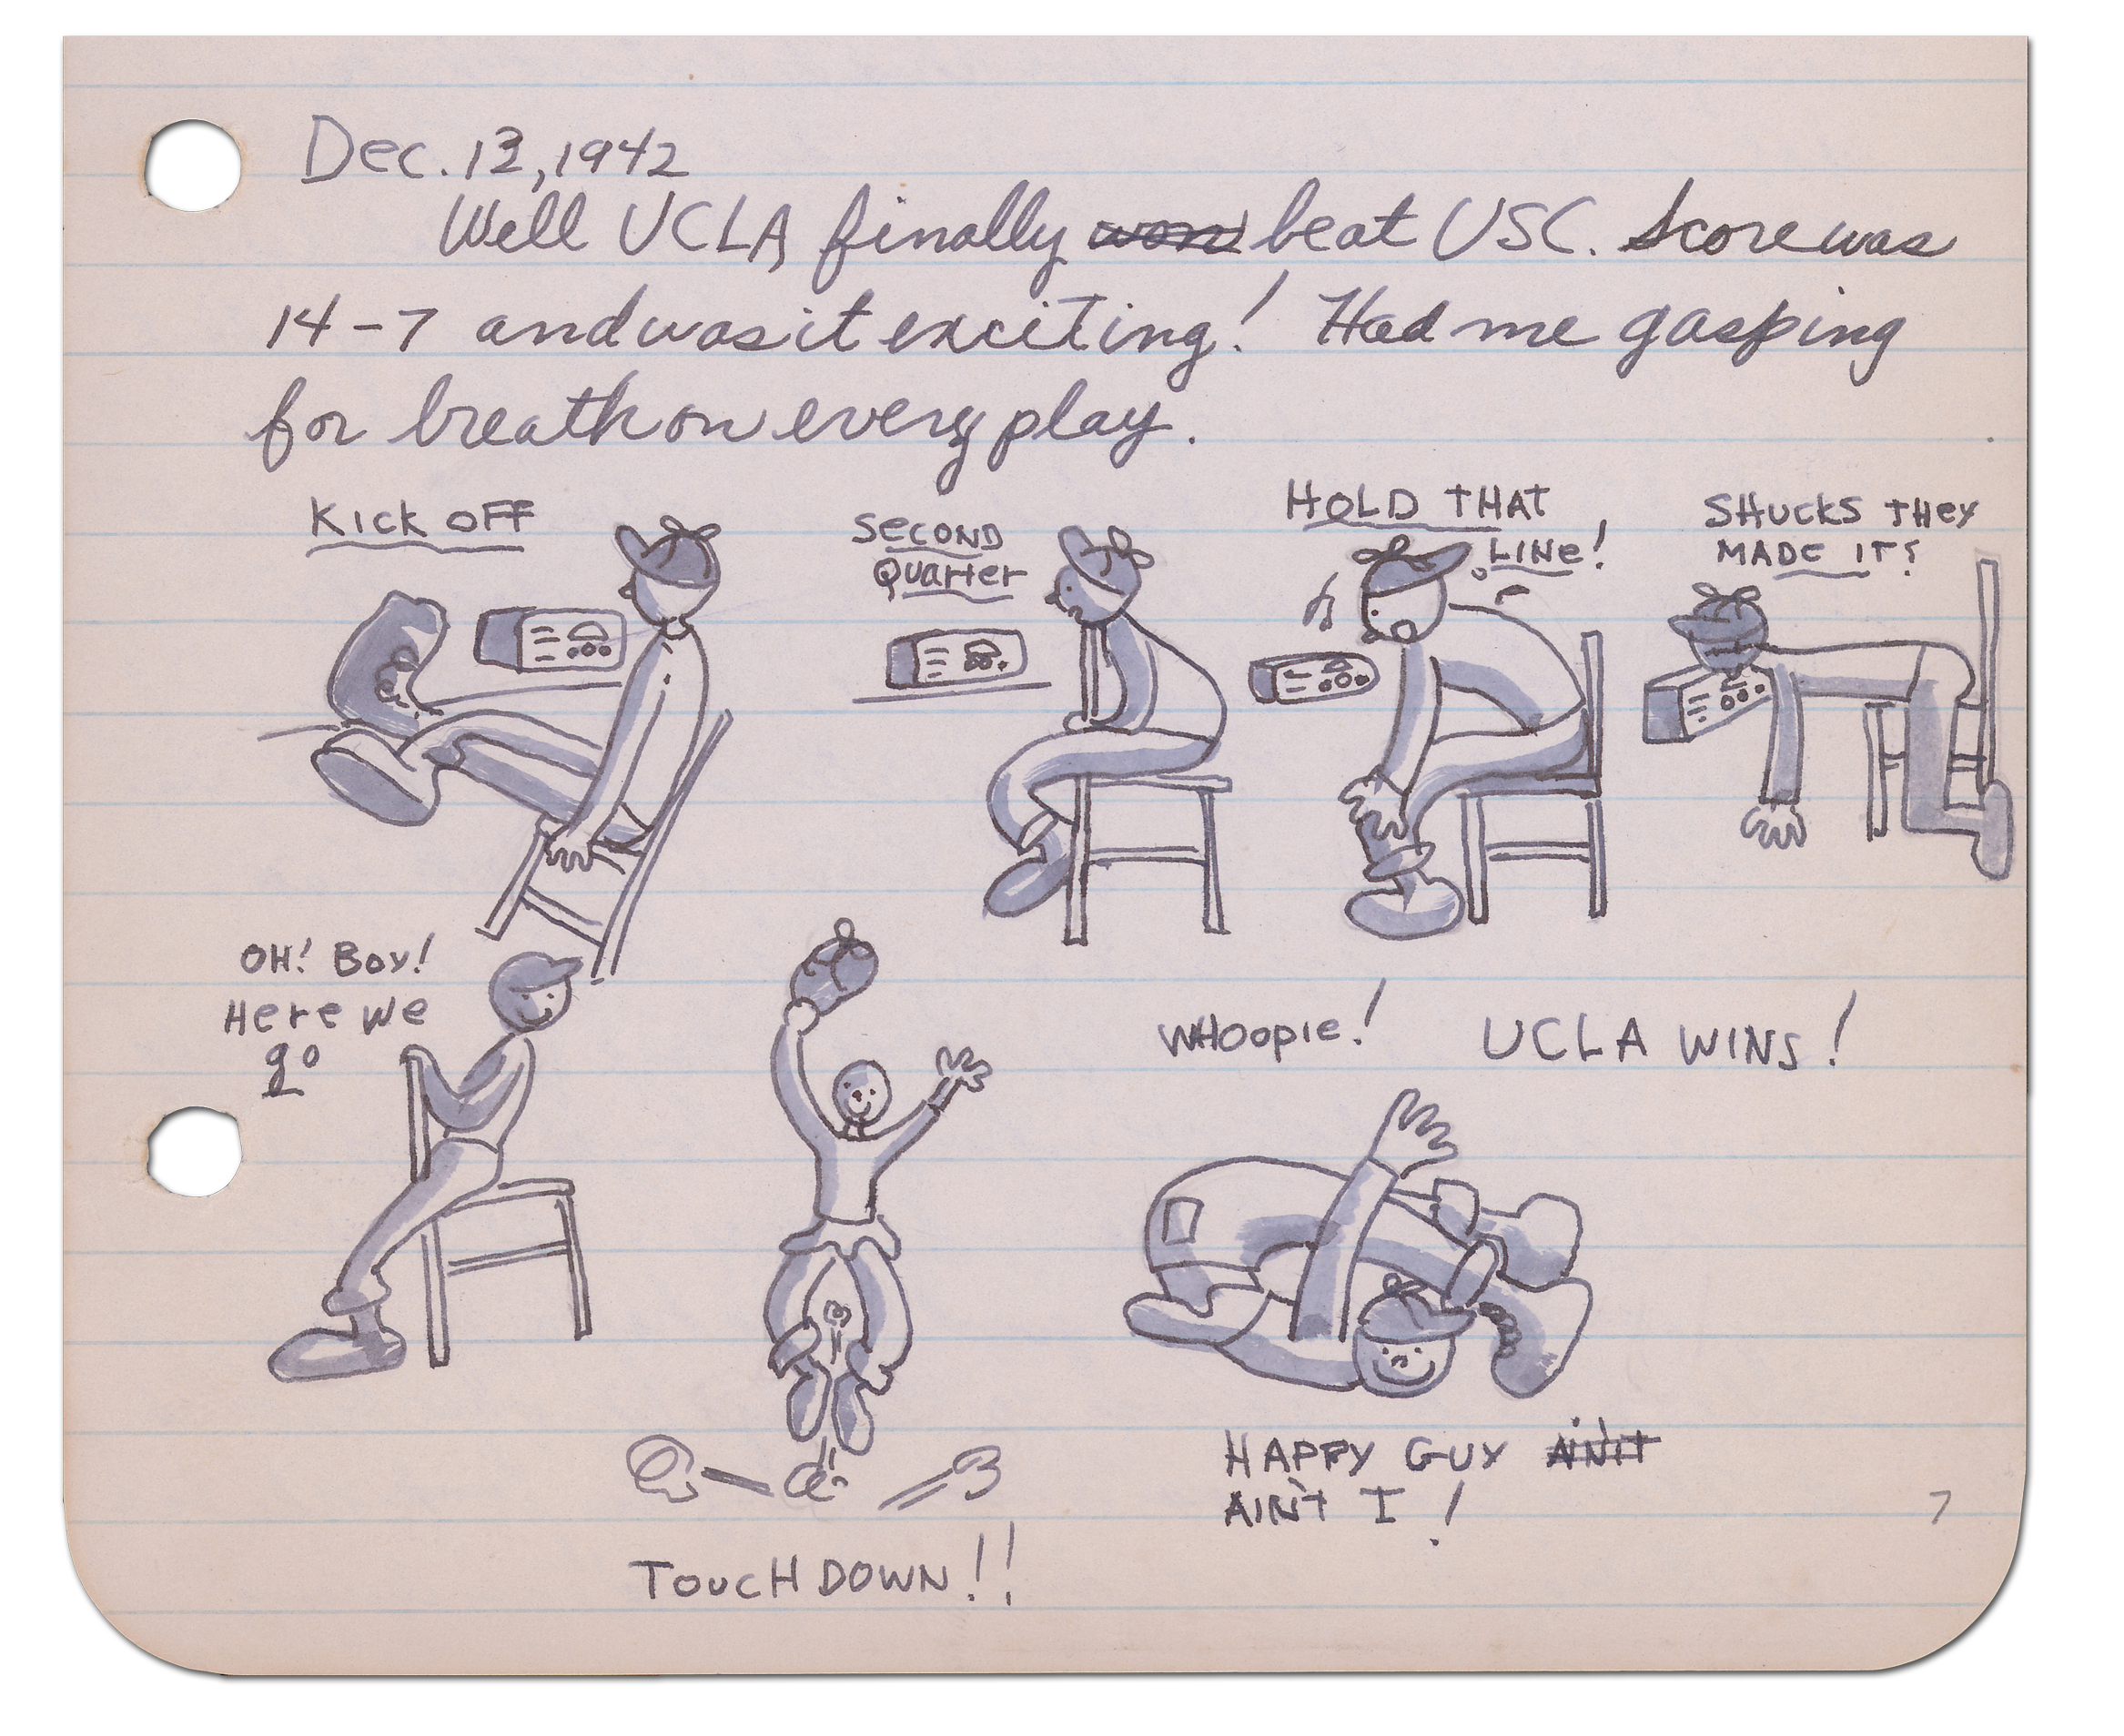 Dec. 13, 1942
Well UCLA finally won beat USC. Score was
14-7 and was it exciting! Had me gasping
for breath on every play.
KICK OFF
SECOND
QUARTER
HOLD THAT
LINE!
SHUCKS THEY
MADE IT?
OH! BOY!
HERE WE
go
WHOOPIE! UCLA WINS!
HAPPY GUY AIN'T
AIN'T I!
TOUCHDOWN!!
7